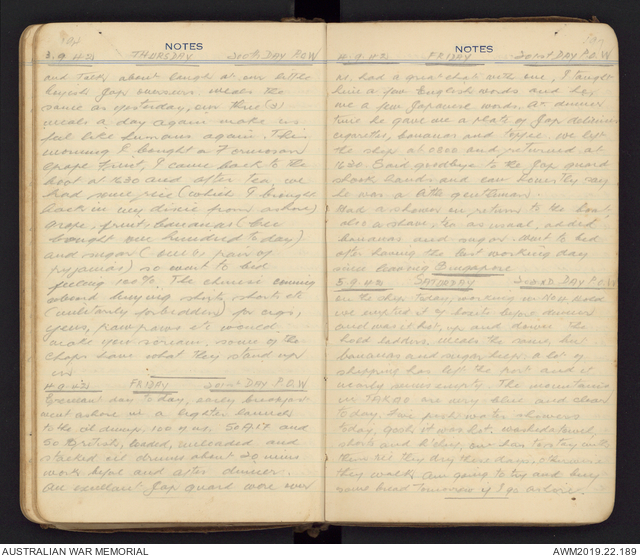 NOTES
3.9.42 THURSDAY 200TH DAY P.O.W
and talk about laugh at our little
Jap overseers. meals the
same as yesterday, our three (3)
meals a day again make us
feel like humans again. This
morning I bought a Formosan
grape fruit, I came back to the
boat at 1630 and after tea we
had some rice (which I brought
back in my dixie from ashore)
grape fruit, bananas (
bought one hundred today)
and sugar ( pair of
pyjamas) so went to bed
feeling 100%. The chinese coming
aboard buying shirts, shorts etc
(militarily forbidden) for cigs,
, pawpaws etc would
make you scream. some of the
chaps have what they stand up
in
4.9.42 FRIDAY 201ST DAY P.O.W
Excellent day today, early breakfast
went ashore in a lighter launch
to the oil dump. 100 of us. 50 A.I.F and
50 British, loaded, unloaded and
stacked oil drums about 20 mins
work before and after dinner.
An excellent Jap guard were over
NOTES
4.9.42 FRIDAY 201ST DAY P.O.W
us, had a great chat with one, I taught
him a few English words and he
me a few Japanese words. At dinner
time he gave me a plate of Jap delicacies
cigarettes, bananas and toffee. We left
the ship at 0800 and returned at
1630. Said goodbye to the Jap guard
shook hands and can honestly say
he was a little gentleman.
Had a shower on return to the boat,
also a shave, tea as usual, added
bananas and sugar. Went to bed
after having the best working day
since leaving Singapore
5.9.42 SATURDAY 202ND DAY P.O.W
on the ship today, working in NO 4. Hold
we emptied it of before dinner
and was it hot, up and down the
hold ladders, meals the same, but
bananas and sugar helps. a lot of
shipping has left the port and it
nearly seems empty. The mountains
in TAKAO are very blue and clear
today, two fresh water showers
today, gosh it was hot. washed towel,
shorts and , one has to stay with
them till they dry these days, otherwise
they walk. Am going to try and buy
some bread tomorrow if I go ashore.
AUSTRALIAN WAR MEMORIAL
AWM2019.22.189